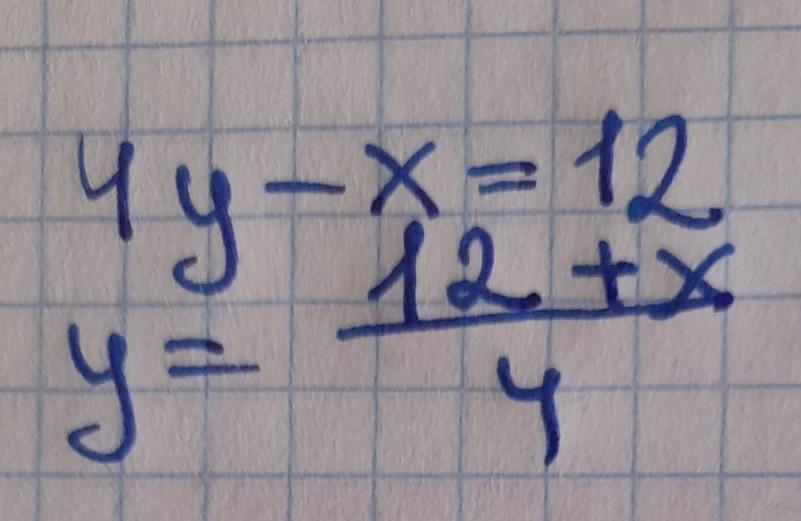 4y - x = 12
y = \frac{12 + x}{4}